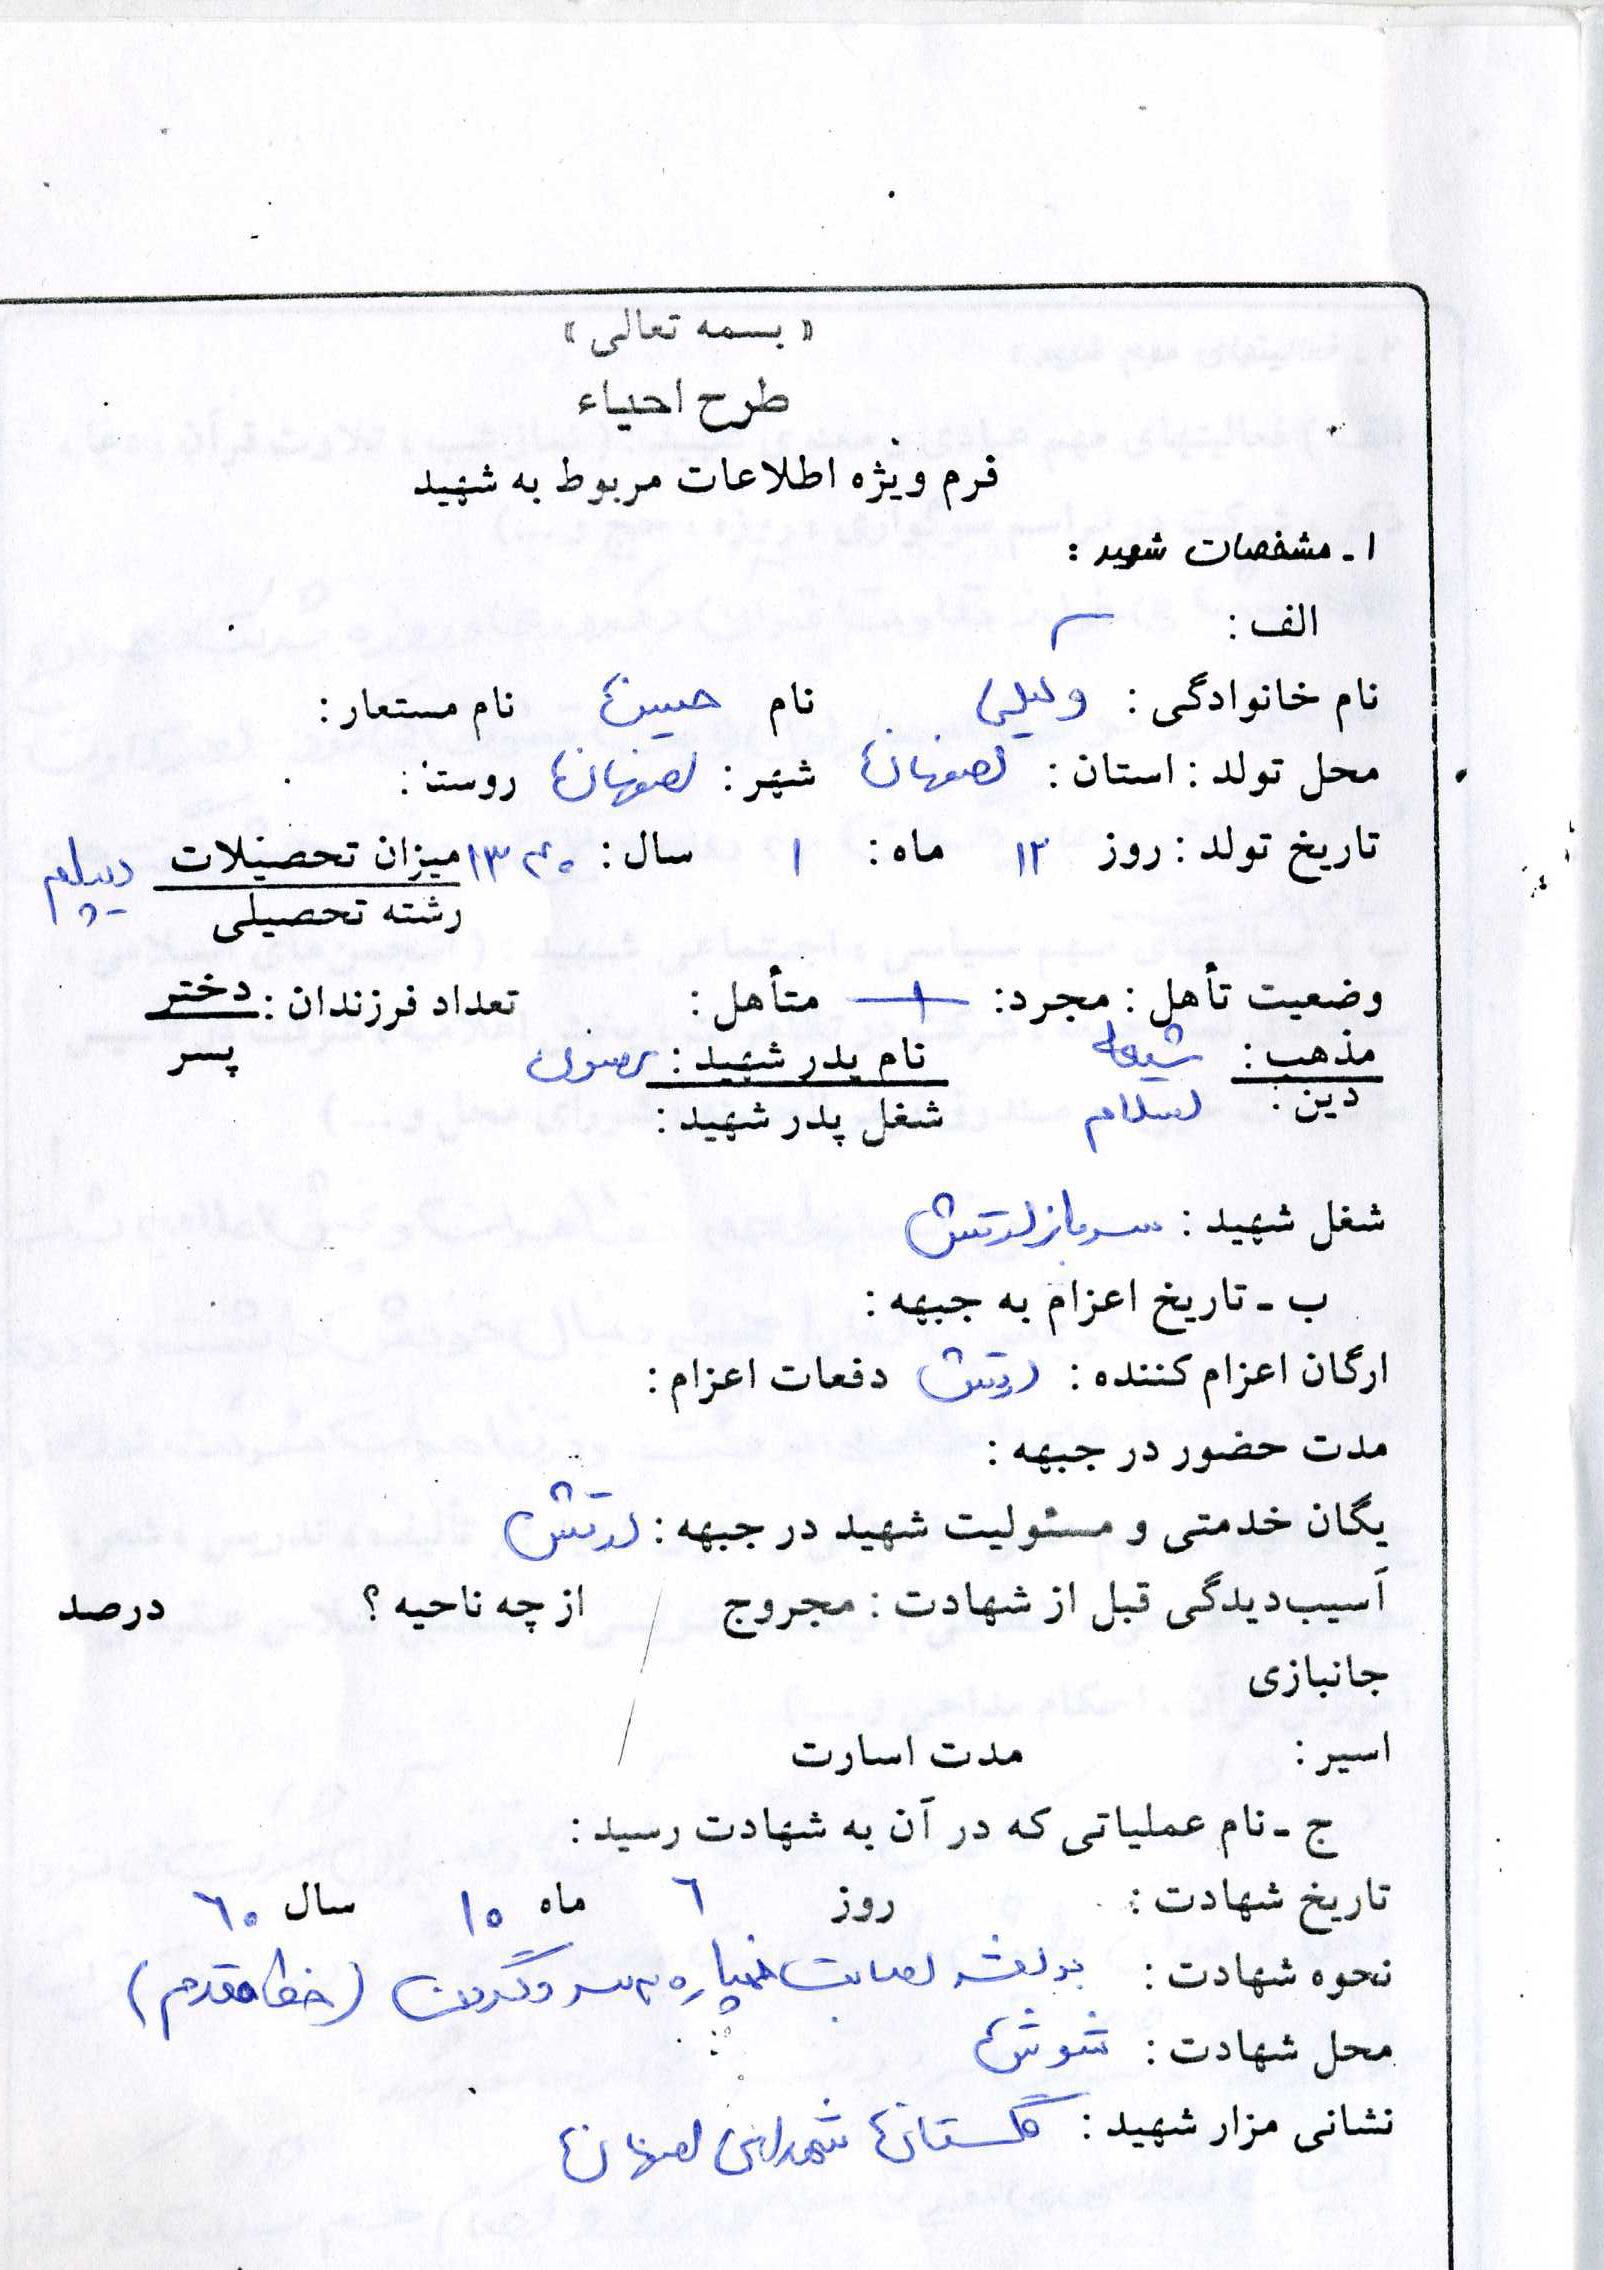 « بسمه تعالی »
طرح احیاء
فرم ویژه اطلاعات مربوط به شهید
۱ ـ مشخصات شهید :
الف :
نام خانوادگی : وکیلی نام حسین نام مستعار :
محل تولد : استان : اصفهان شهر : اصفهان روستا :
تاریخ تولد : روز ۱۲ ماه : ۱ سال : ۱۳۴۰ میزان تحصیلات دیپلم
رشته تحصیلی
وضعیت تأهل : مجرد : متأهل : تعداد فرزندان : دختر
مذهب : شیعه نام پدر شهید : پسر
دین : اسلام شغل پدر شهید :
شغل شهید : سرباز ارتش
ب ـ تاریخ اعزام به جبهه :
ارگان اعزام کننده : ارتش دفعات اعزام :
مدت حضور در جبهه :
یگان خدمتی و مسئولیت شهید در جبهه : ارتش
آسیب‌دیدگی قبل از شهادت : مجروح از چه ناحیه ؟ درصد
جانبازی
اسیر : مدت اسارت
ج ـ نام عملیاتی که در آن به شهادت رسید :
تاریخ شهادت : روز ٦ ماه ۱۰ سال ٦۰
نحوه شهادت : بر اثر اصابت خمپاره به سر و گردن (خط مقدم)
محل شهادت : شوش
نشانی مزار شهید : گلستان شهدای اصفهان